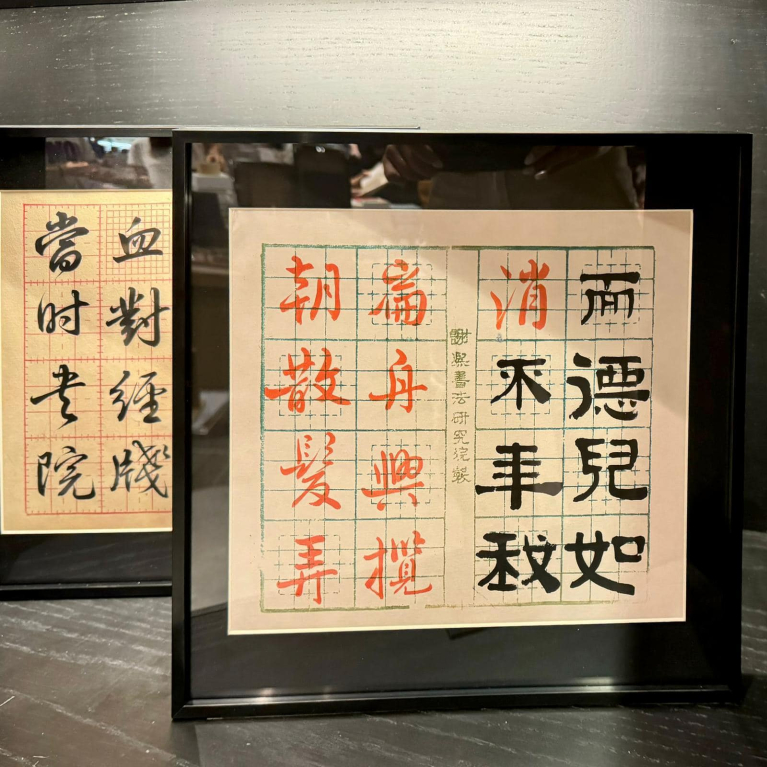 而德兒如
消不年
謝書法研究院製
扁舟興攬
朝散髮弄
血對經牋
當时書院